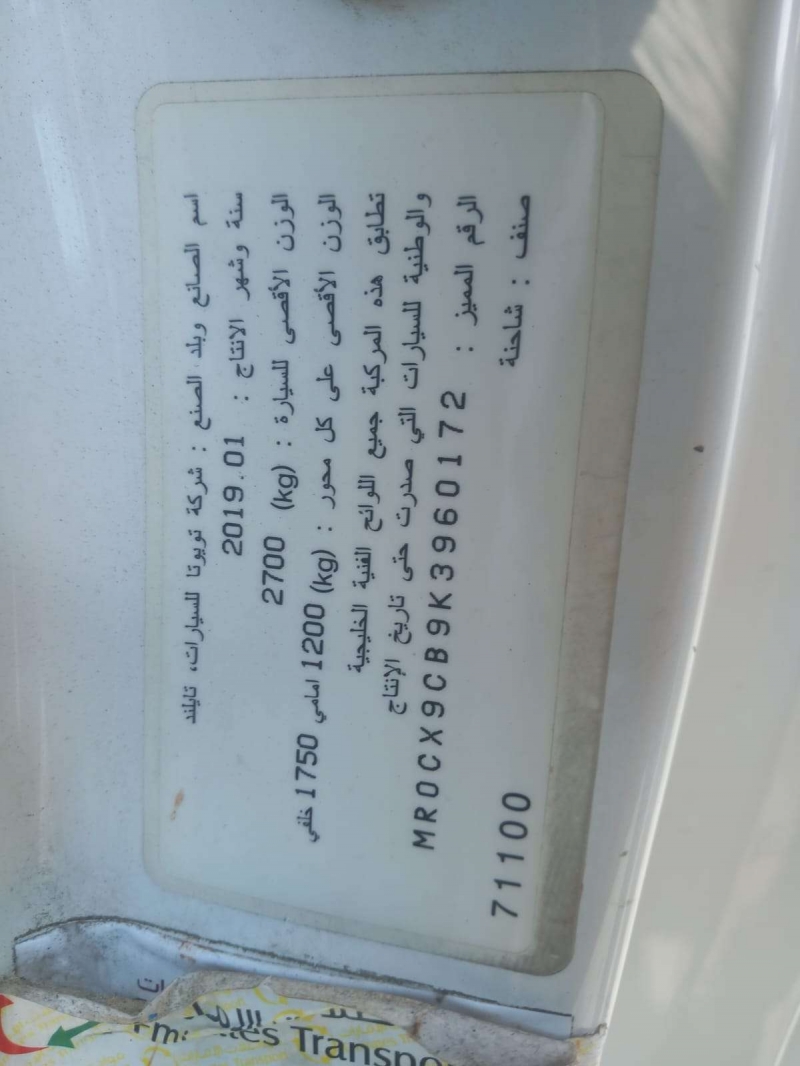 اسم الصانع وبلد الصنع : شركة تويوتا للسيارات، تايلند
سنة وشهر الانتاج : 2019.01
الوزن الأقصى للسيارة : (kg) 2700
الوزن الأقصى على كل محور : (kg) 1200 امامي 1750 خلفي
تطابق هذه المركبة جميع اللوائح الفنية الخليجية
والوطنية للسيارات التي صدرت حتى تاريخ الإنتاج
الرقم المميز : MR0CX9CB9K3960172
صنف : شاحنة 71100
Transpo